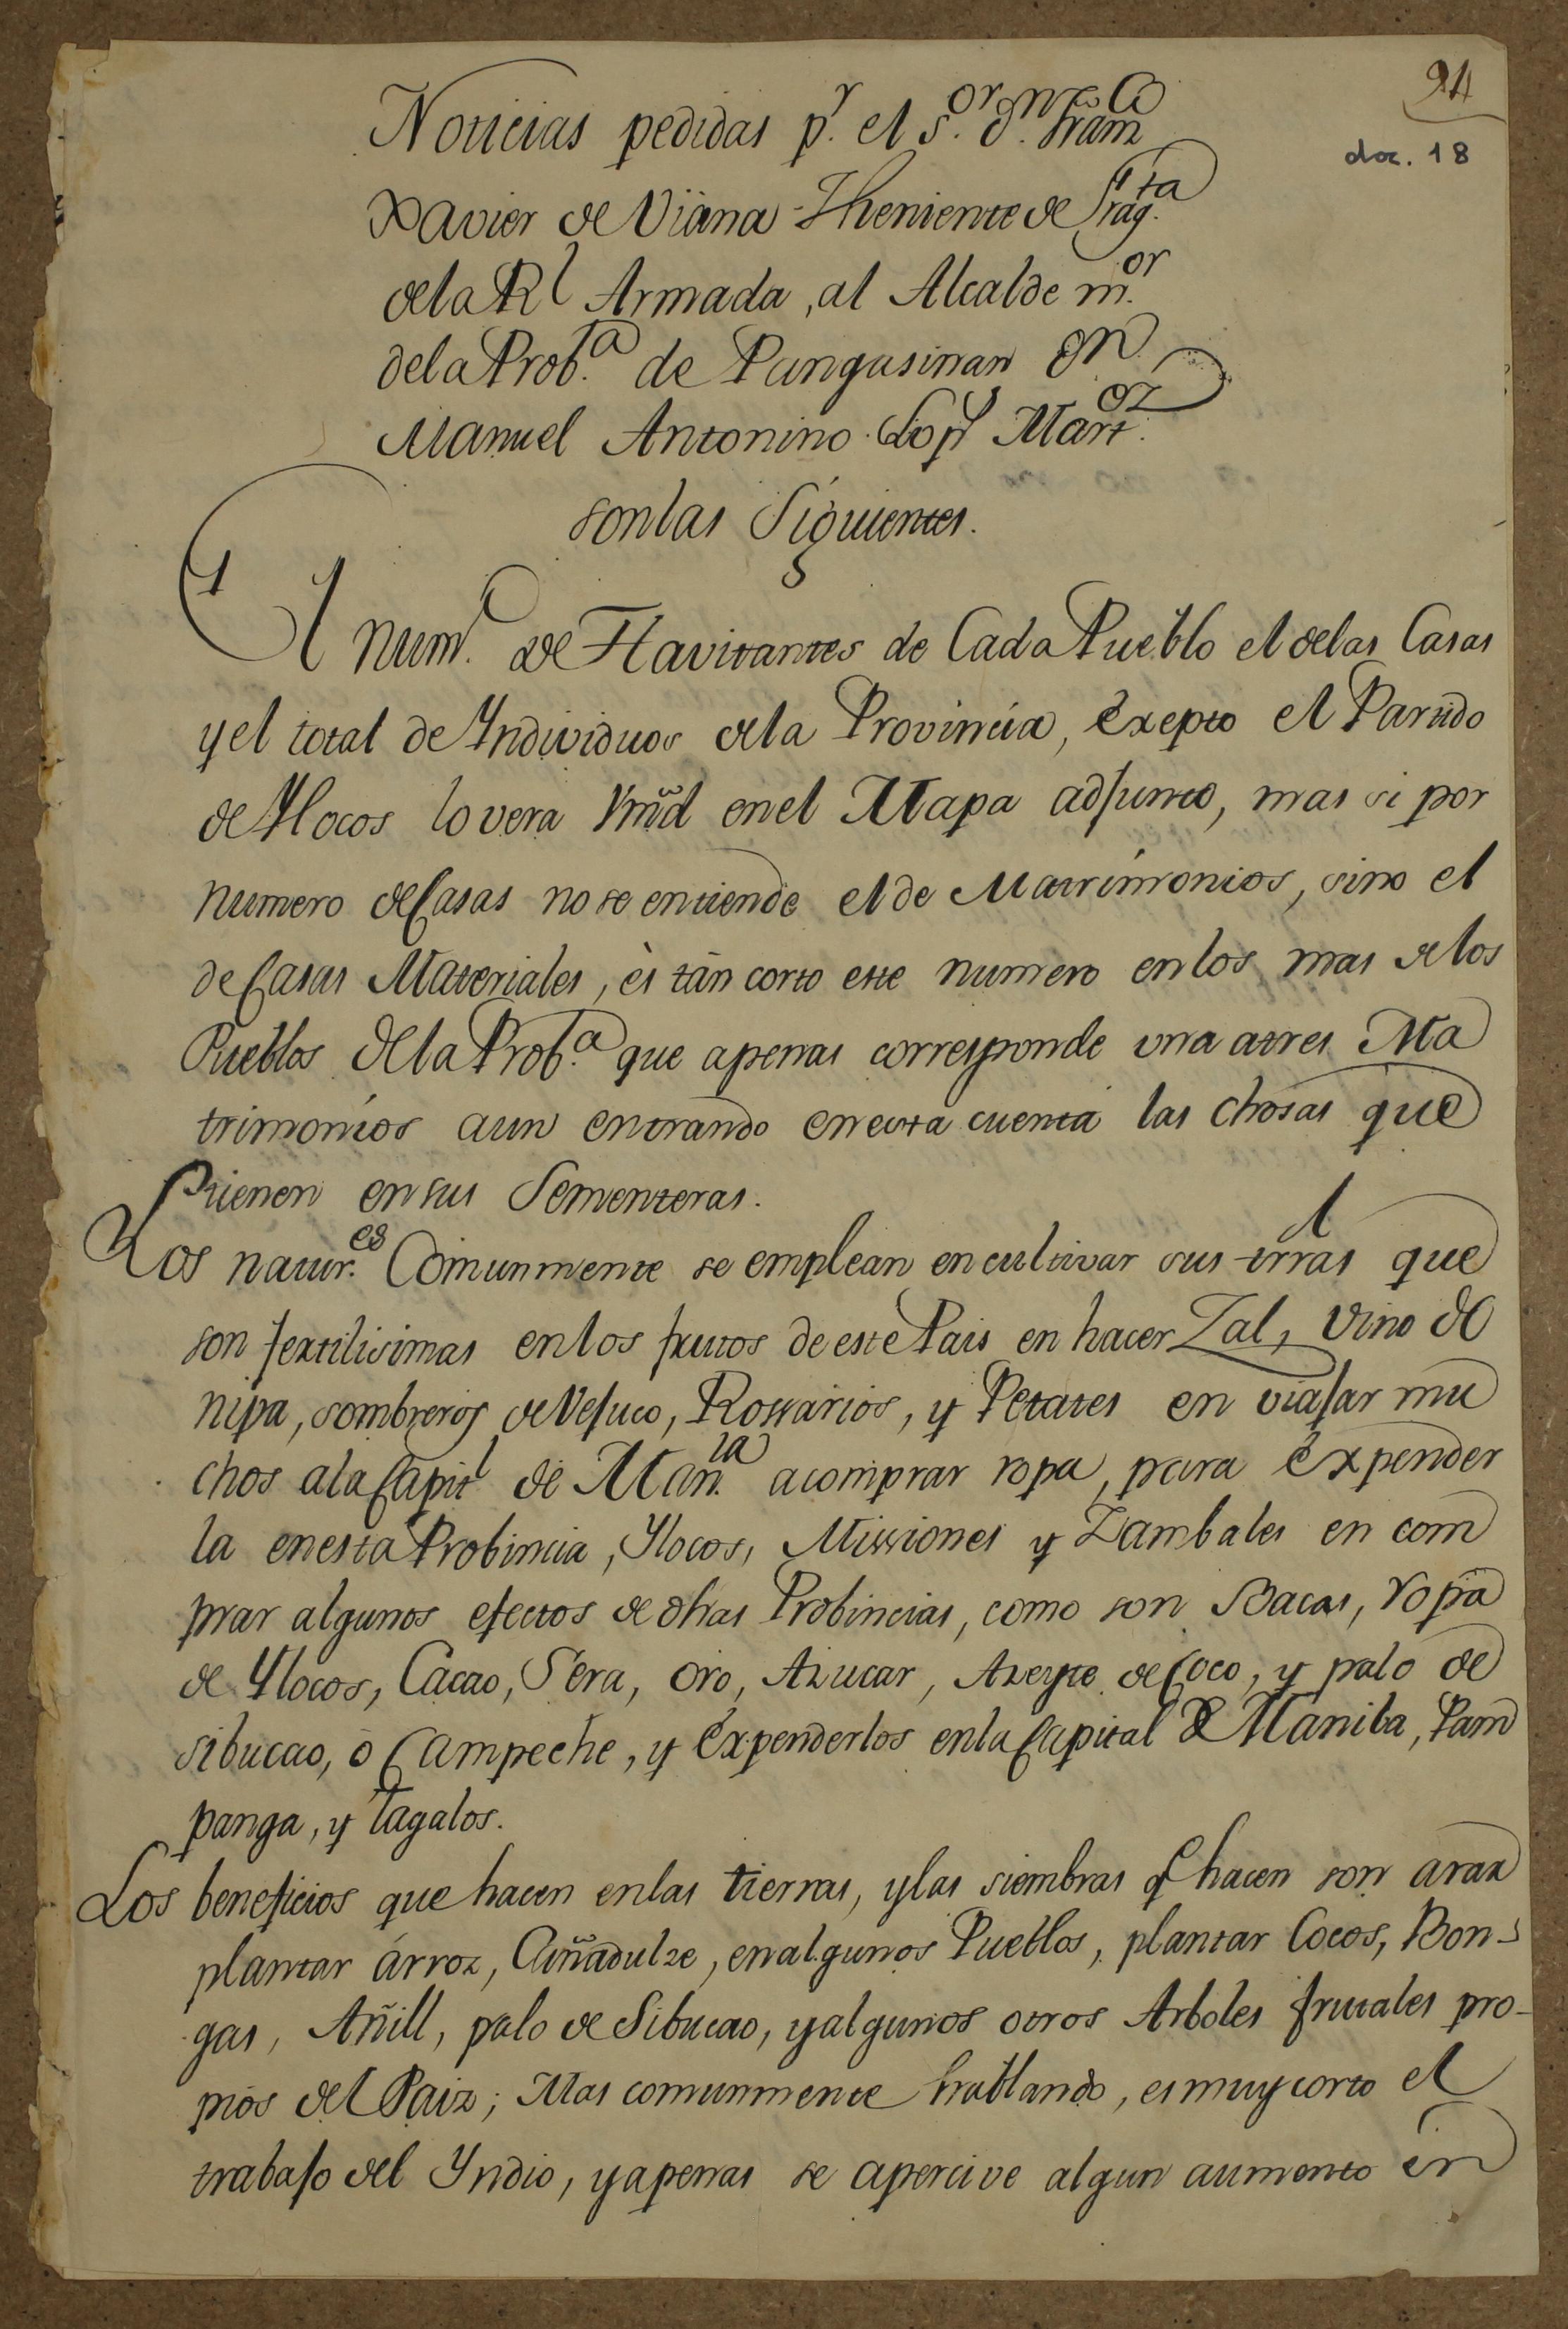 94
doc. 18
Noticias pedidas p.r el s.or d.n Fran.co
Xavier de Viana Theniente de Frag.ta
dela Rl Armada, al Alcalde m.or
dela Prob.a de Pangasinan Dn
Manuel Antonino Lop.z Mart.oz
son las Siguientes.
El num.o de Havitantes de Cada Pueblo el delas Casas
y el total de Yndividuos dela Provincia, éxepto el Partido
de Ylocos lo vera Vmd en el Mapa adjunto, mas si por
numero de Casas no se entiende el de Matrimonios, sino el
de Casas Materiales, és tán corto este numero en los mas delos
Pueblos dela Prob.a que apenas corresponde una atres Ma
trimonios aun entrando en esta cuenta las chosas que
tienen en sus Sementeras.
Los natur.es Comunmente se emplean en cultivar sus trras que
son fertilisimas en los frutos de este Pais en hacer Zal, vino de
nipa, sombreros de Vejuco, Rossarios, y Petates en viajar mu
chos ala Capitl de Man.la acomprar ropa, para éxpender
la en esta Probincia, Ylocos, Missiones y Zambales en com
prar algunos efectos de otras Probincias, como son Bacas, ropa
de Ylocos, Cacao, Sera, oro, Azucar, Azeyte de Coco, y palo de
sibucao, ó Campeche, y éxpenderlos enla Capital de Manila, Pam
panga, y tagalos.
Los beneficios que hacen enlas tierras, y las siembras q.e hacen son arar
plantar árroz, Cañadulze, en algunos Pueblos, plantar Cocos, Bon-
gas, Añill, palo de Sibucao, y algunos otros Arboles frutales pro-
pios del Paiz; Mas comunmente hablando, es muy corto el
trabajo del Yndio, y apenas se apercive algun aumento en